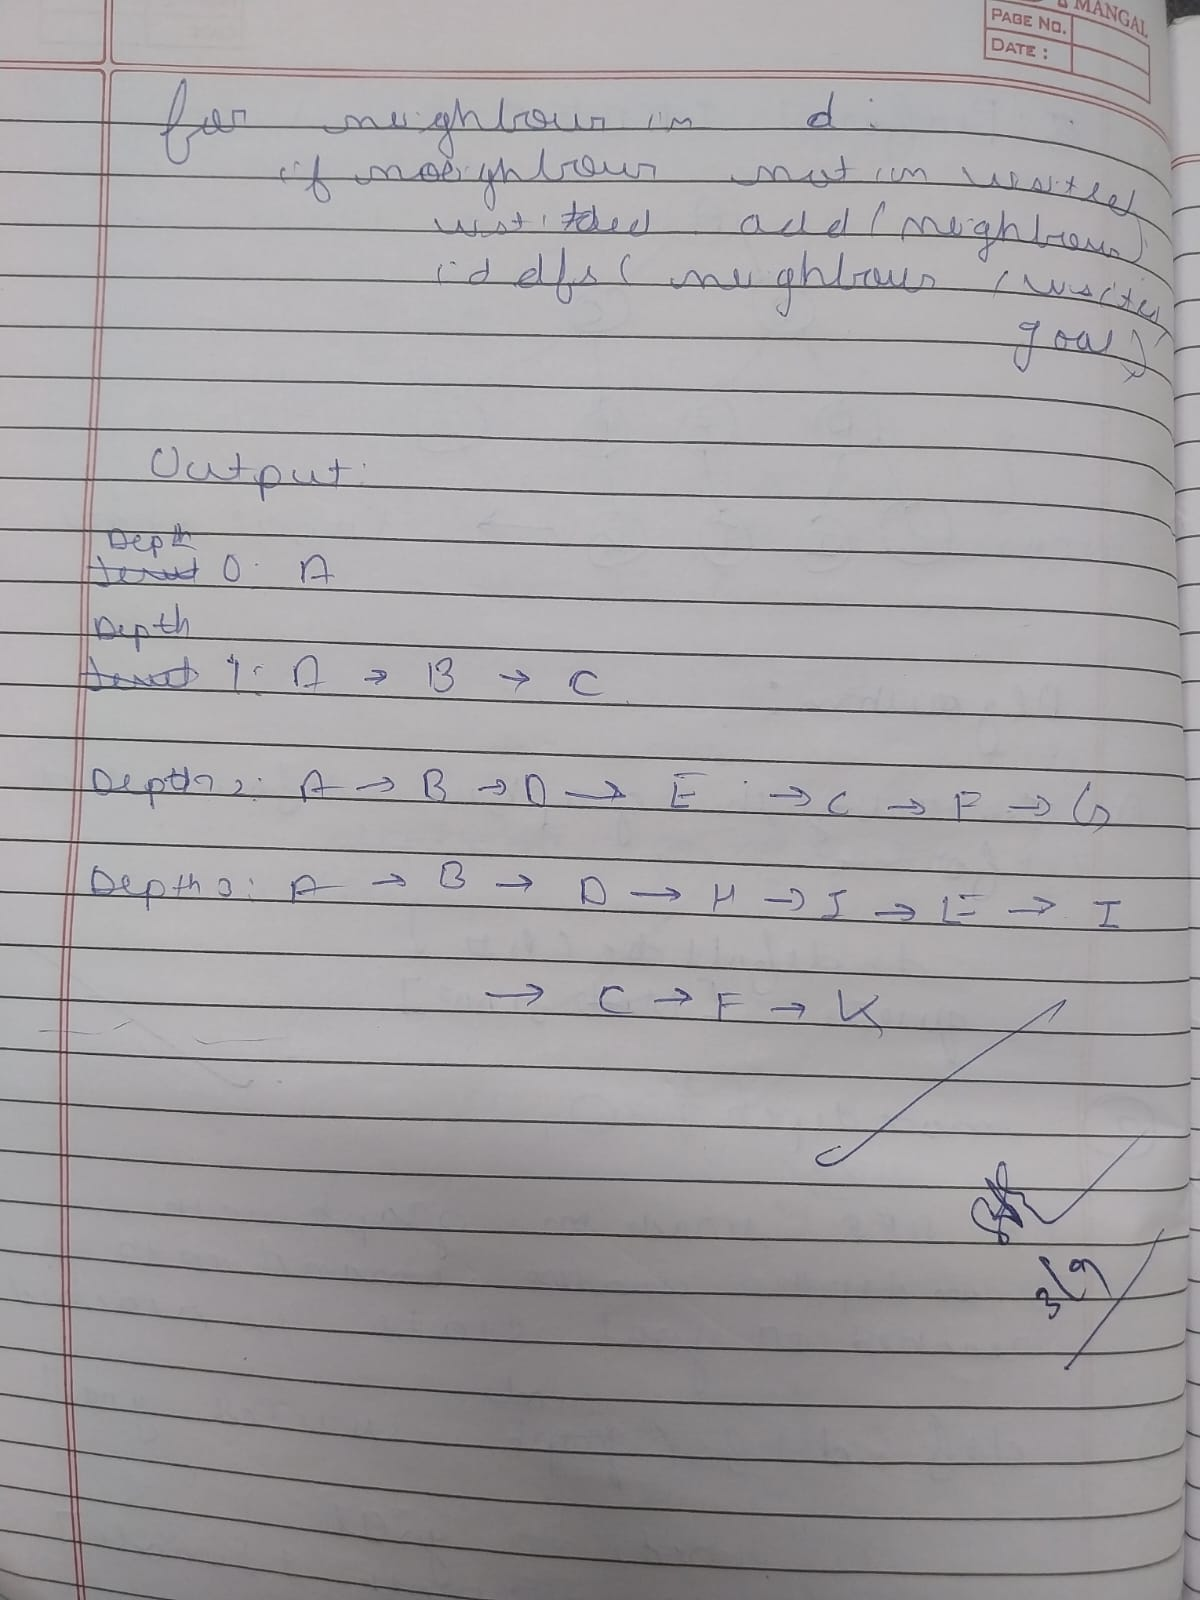 MANGAL
PAGE NO.
DATE :
for neighbour in d :
if noeighbour not in visited
visitded add ( neighbour )
id dfs ( neighbour , visited
goal )
Output :
Depth
0 : A
Depth
1 : A → B → C
Depth 2 : A → B → D → E → C → F → G
Depth 3 : A → B → D → H → I → E → I
→ C → F → K
3/9